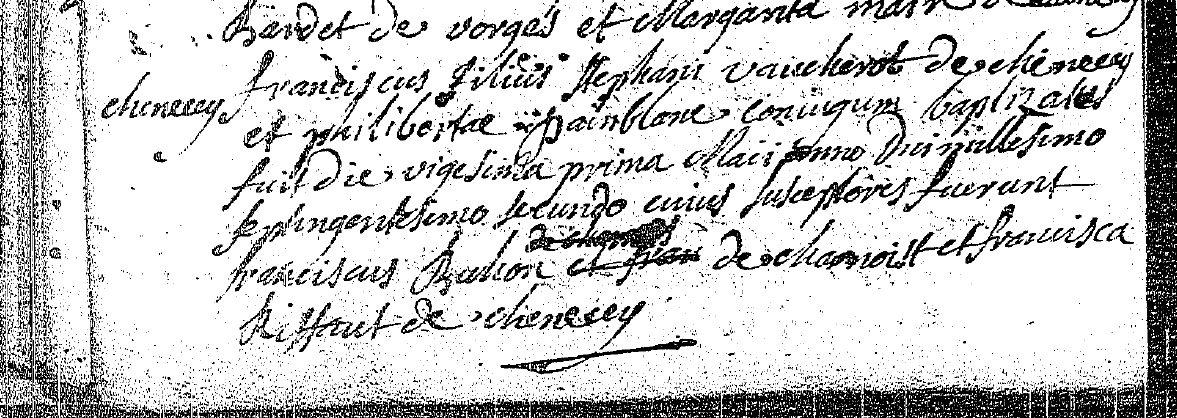 Bardet de vorges et Margarita
franciscus filius stephani vaucherot de chenecey
chenecey
et philibertae painblanc coniugum baptizatus
fuit die vigesima prima Maii anno Dni millesimo
septingentesimo secundo cuius susceptores fuerunt
franciscus Buhon et fran de chamoist et francisca
Riffaut de chenecey